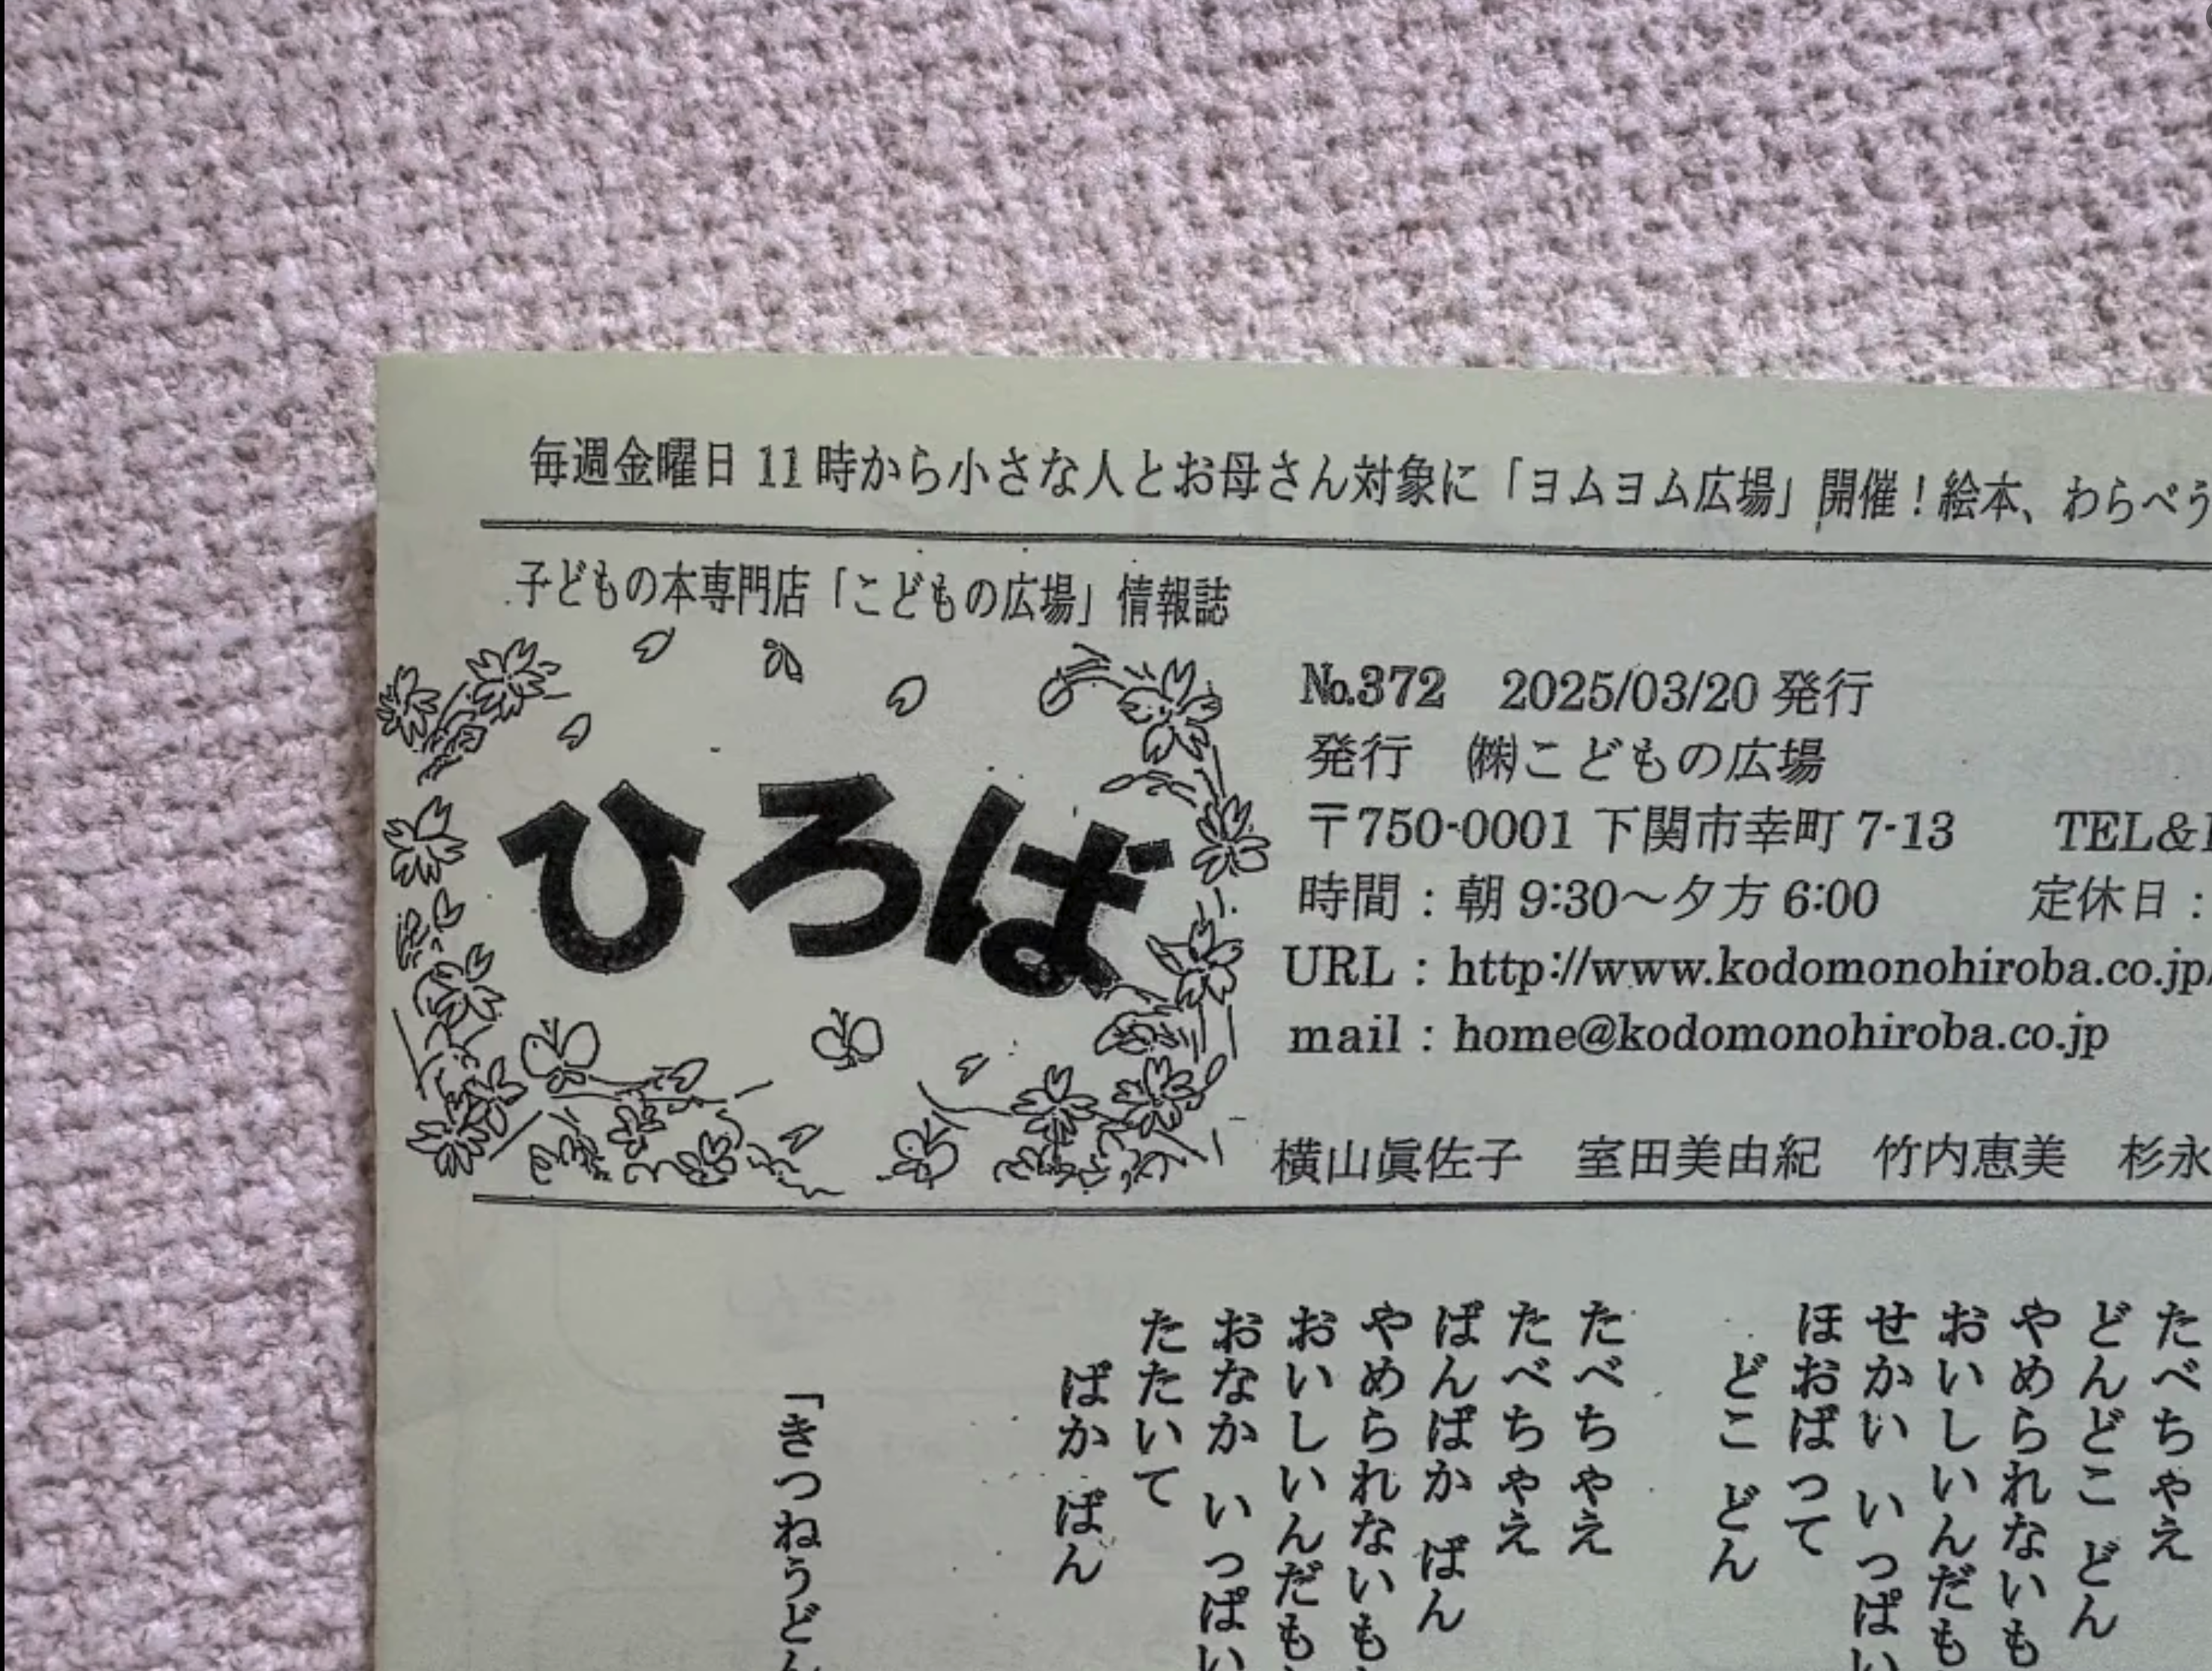 毎週金曜日 11 時から小さな人とお母さん対象に「ヨムヨム広場」開催！絵本、わらべう
子どもの本専門店「こどもの広場」情報誌
ひろば
№372 2025/03/20 発行
発行 ㈱こどもの広場
〒750-0001 下関市幸町 7-13 TEL&
時間：朝 9:30～夕方 6:00 定休日：
URL：http://www.kodomonohiroba.co.jp/
mail：home@kodomonohiroba.co.jp
横山眞佐子 室田美由紀 竹内恵美 杉永
たべちゃえ
どんどこ どん
やめられないも
おいしいんだも
せかい いっぱい
ほおばって
どこ どん
たべちゃえ
たべちゃえ
ぱんぱか ぱん
やめられないも
おいしいんだも
おなか いっぱい
たたいて
ぱか ぱん
「きつねうどん